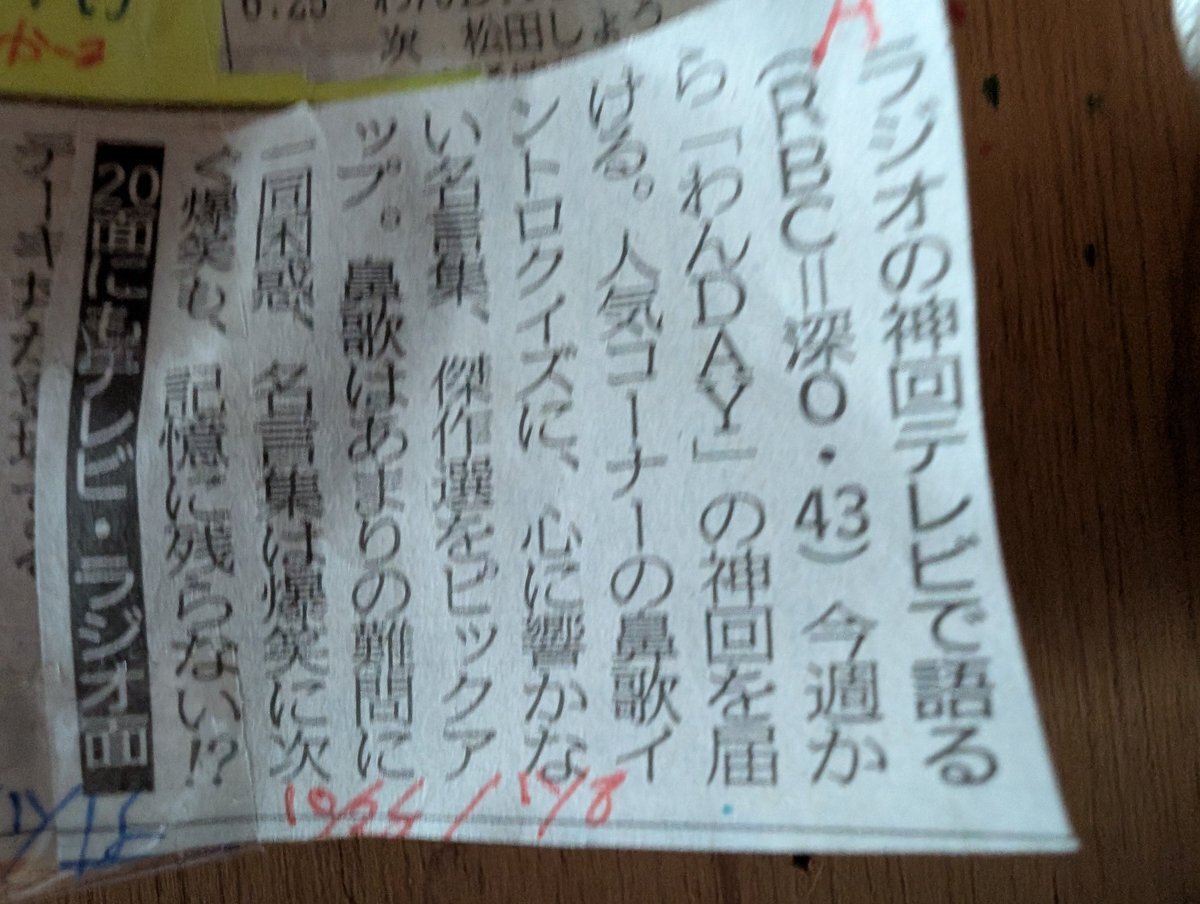 ラジオの神回テレビで語る
(RBC＝深0・43) 今週か
ら「わんDAY」の神回を届
ける。人気コーナーの鼻歌イ
ントロクイズに、心に響かな
い名言集、傑作選をピックア
ップ。鼻歌はあまりの難問に
一同困惑、名言集は爆笑に次
ぐ爆笑も、記憶に残らない!?
20面に続テレビ・ラジオ面
次 松田しょう
6:25
10/25/11/8